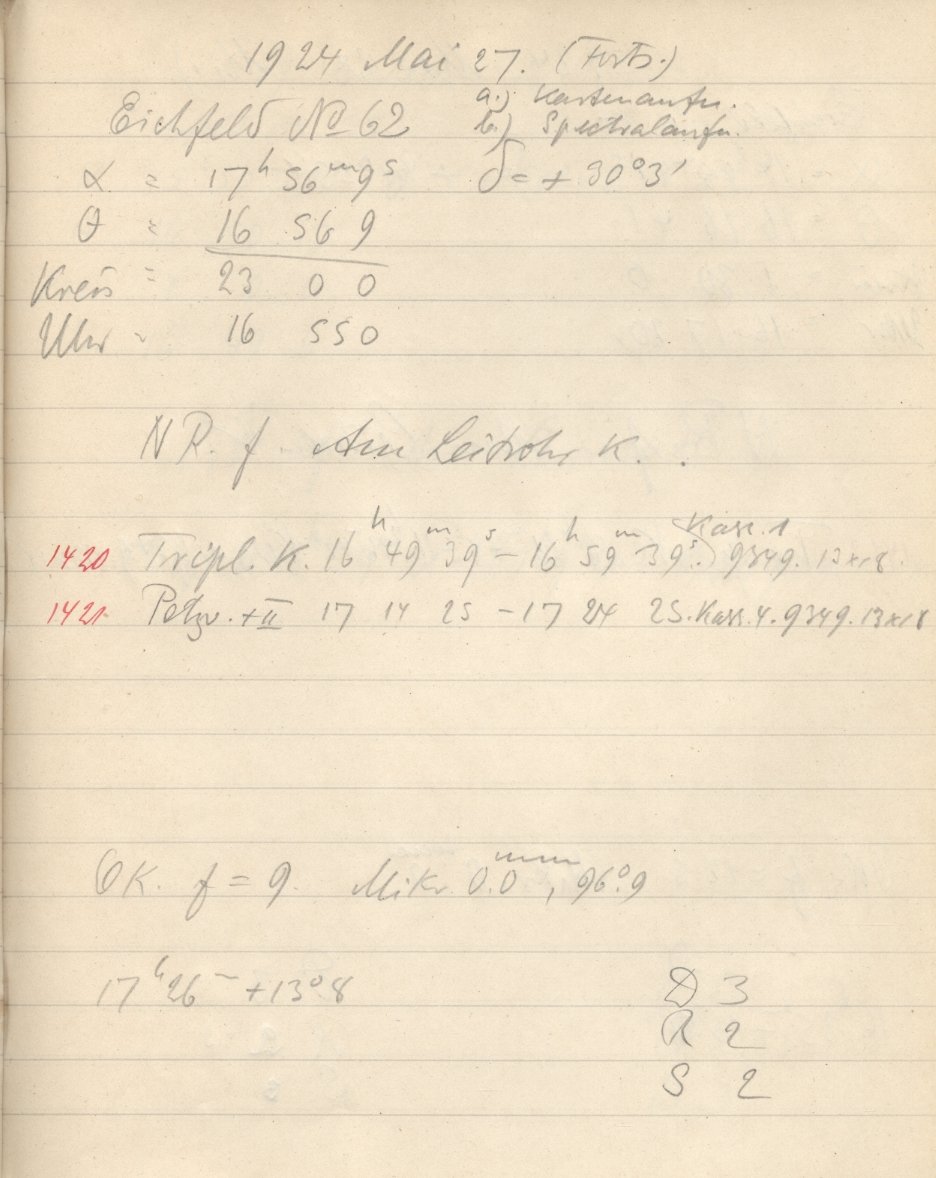 1924 Mai 27. (Forts.)
Eichfeld № 62
a.) Kartenaufn.
b.) Spectralaufn.
α = 17ʰ 56ᵐ 9ˢ δ = + 30°3'
θ = 16 56 9
Kreis = 23 0 0
Uhr = 16 55 0
NR. f. Am Leitrohr K.
Kass. 1
1420 Tripl. K. 16ʰ 49ᵐ 39ˢ – 16ʰ 59ᵐ 39ˢ. 9349. 13x18.
1421 Petzv. + II 17 14 25 – 17 24 25. Kass. 4. 9349. 13x18
OK. f = 9. Mikr. 0.0ᵐᵐ, 96°.9
17ʰ26ᵐ +13°8
D 3
R 2
S 2